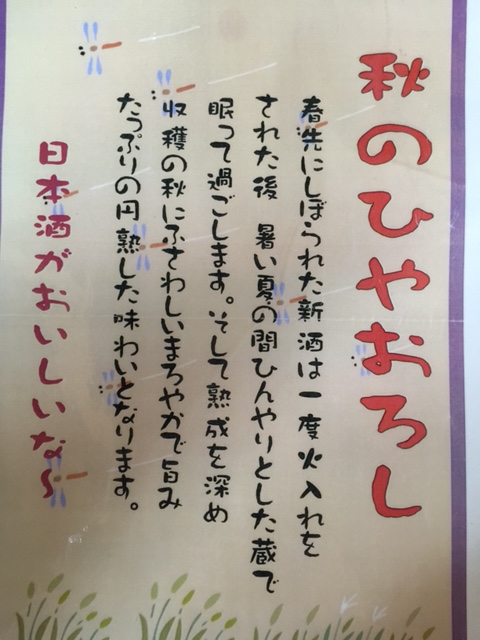 秋のひやおろし
春先にしぼられた新酒は一度火入れを
された後　暑い夏の間ひんやりとした蔵で
眠って過ごします。そして熟成を深め
収穫の秋にふさわしいまろやかで旨み
たっぷりの円熟した味わいとなります。
日本酒がおいしいな〜